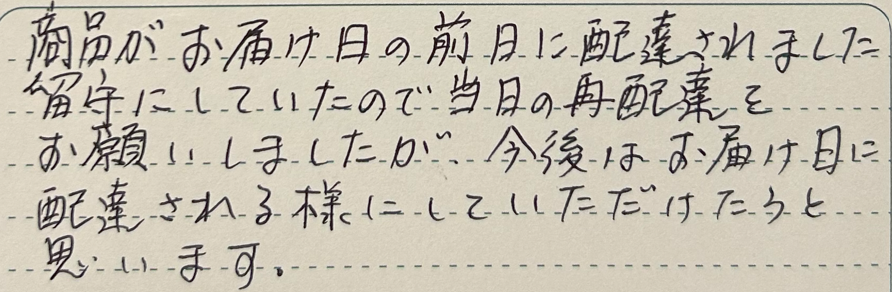 商品がお届け日の前日に配達されました
留守にしていたので当日の再配達を
お願いしましたが、今後はお届け日に
配達される様にしていただけたらと
思います。